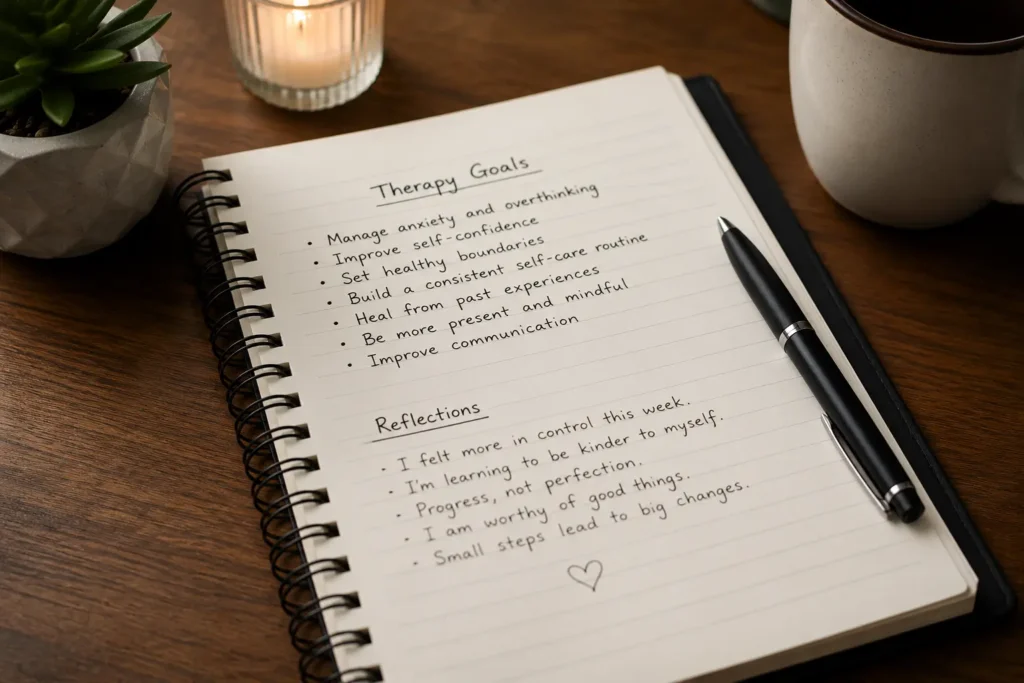 Therapy Goals
• Manage anxiety and overthinking
• Improve self-confidence
• Set healthy boundaries
• Build a consistent self-care routine
• Heal from past experiences
• Be more present and mindful
• Improve communication
Reflections
• I felt more in control this week.
• I'm learning to be kinder to myself.
• Progress, not perfection.
• I am worthy of good things.
• Small steps lead to big changes.